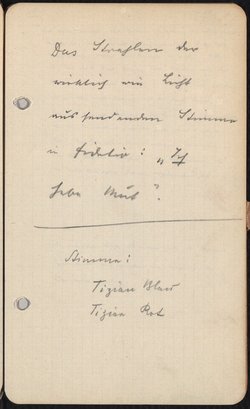 Das Strahlen der
wirklich wie Licht
aussendenden Stimme
in Fidelio: „Ich
habe Mut".
Stimme:
Tizian Blau
Tizian Rot